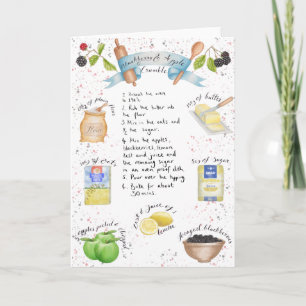 Blackberry & Apple
Crumble
1. Preheat the oven
2.
3. Rub the butter into
the flour
3. Mix in the oats and
the sugar.
4. Mix the apples,
blackberries, lemon
zest and juice and
the remaining sugar
in an oven proof dish.
5. Pour over the topping
6. Bake for about
30 mins.
of flour
Flour
of butter
of oats
of sugar
apples peeled &
zest & juice of 1
lemon
foraged blackberries